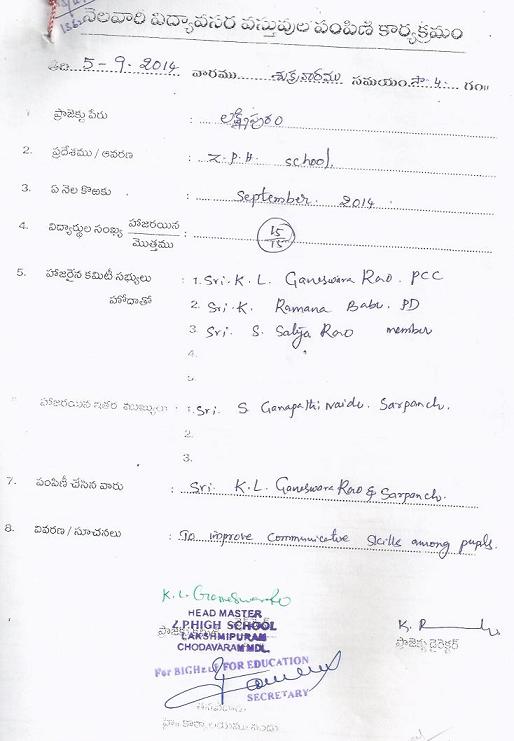 నెలవారి విద్యావసర వస్తువుల పంపిణి కార్యక్రమం
తేది 5-9-2014 వారము శుక్రవారము సమయం సా 4 గం॥
1. ప్రాజెక్టు పేరు : లక్ష్మీపురం
2. ప్రదేశము / ఆవరణ : Z.P.H. school.
3. ఏ నెల కొఱకు : September. 2014
4. విద్యార్థుల సంఖ్య హాజరయిన / మొత్తము : 15/15
5. హాజరైన కమిటీ సభ్యులు : 1. Sri. K. L. Ganeswara Rao. PCC
హోదాతో 2. Sri. K. Ramana Babu. PD
3. Sri. S. Satya Rao member
4.
5.
హాజరయిన ఇతర ముఖ్యులు : 1. Sri. S Ganapathi Naidu. Sarpanch.
2.
3.
7. పంపిణీ చేసిన వారు : Sri. K.L. Ganeswara Rao & Sarpanch.
8. వివరణ / సూచనలు : To improve communicative skills among pupils.
K. L. Ganeswara Rao
HEAD MASTER
Z.P.HIGH SCHOOL
LAKSHMIPURAM
CHODAVARAM MDL.
ప్రాజెక్టు డైరెక్టర్
For BIGHELP FOR EDUCATION
SECRETARY